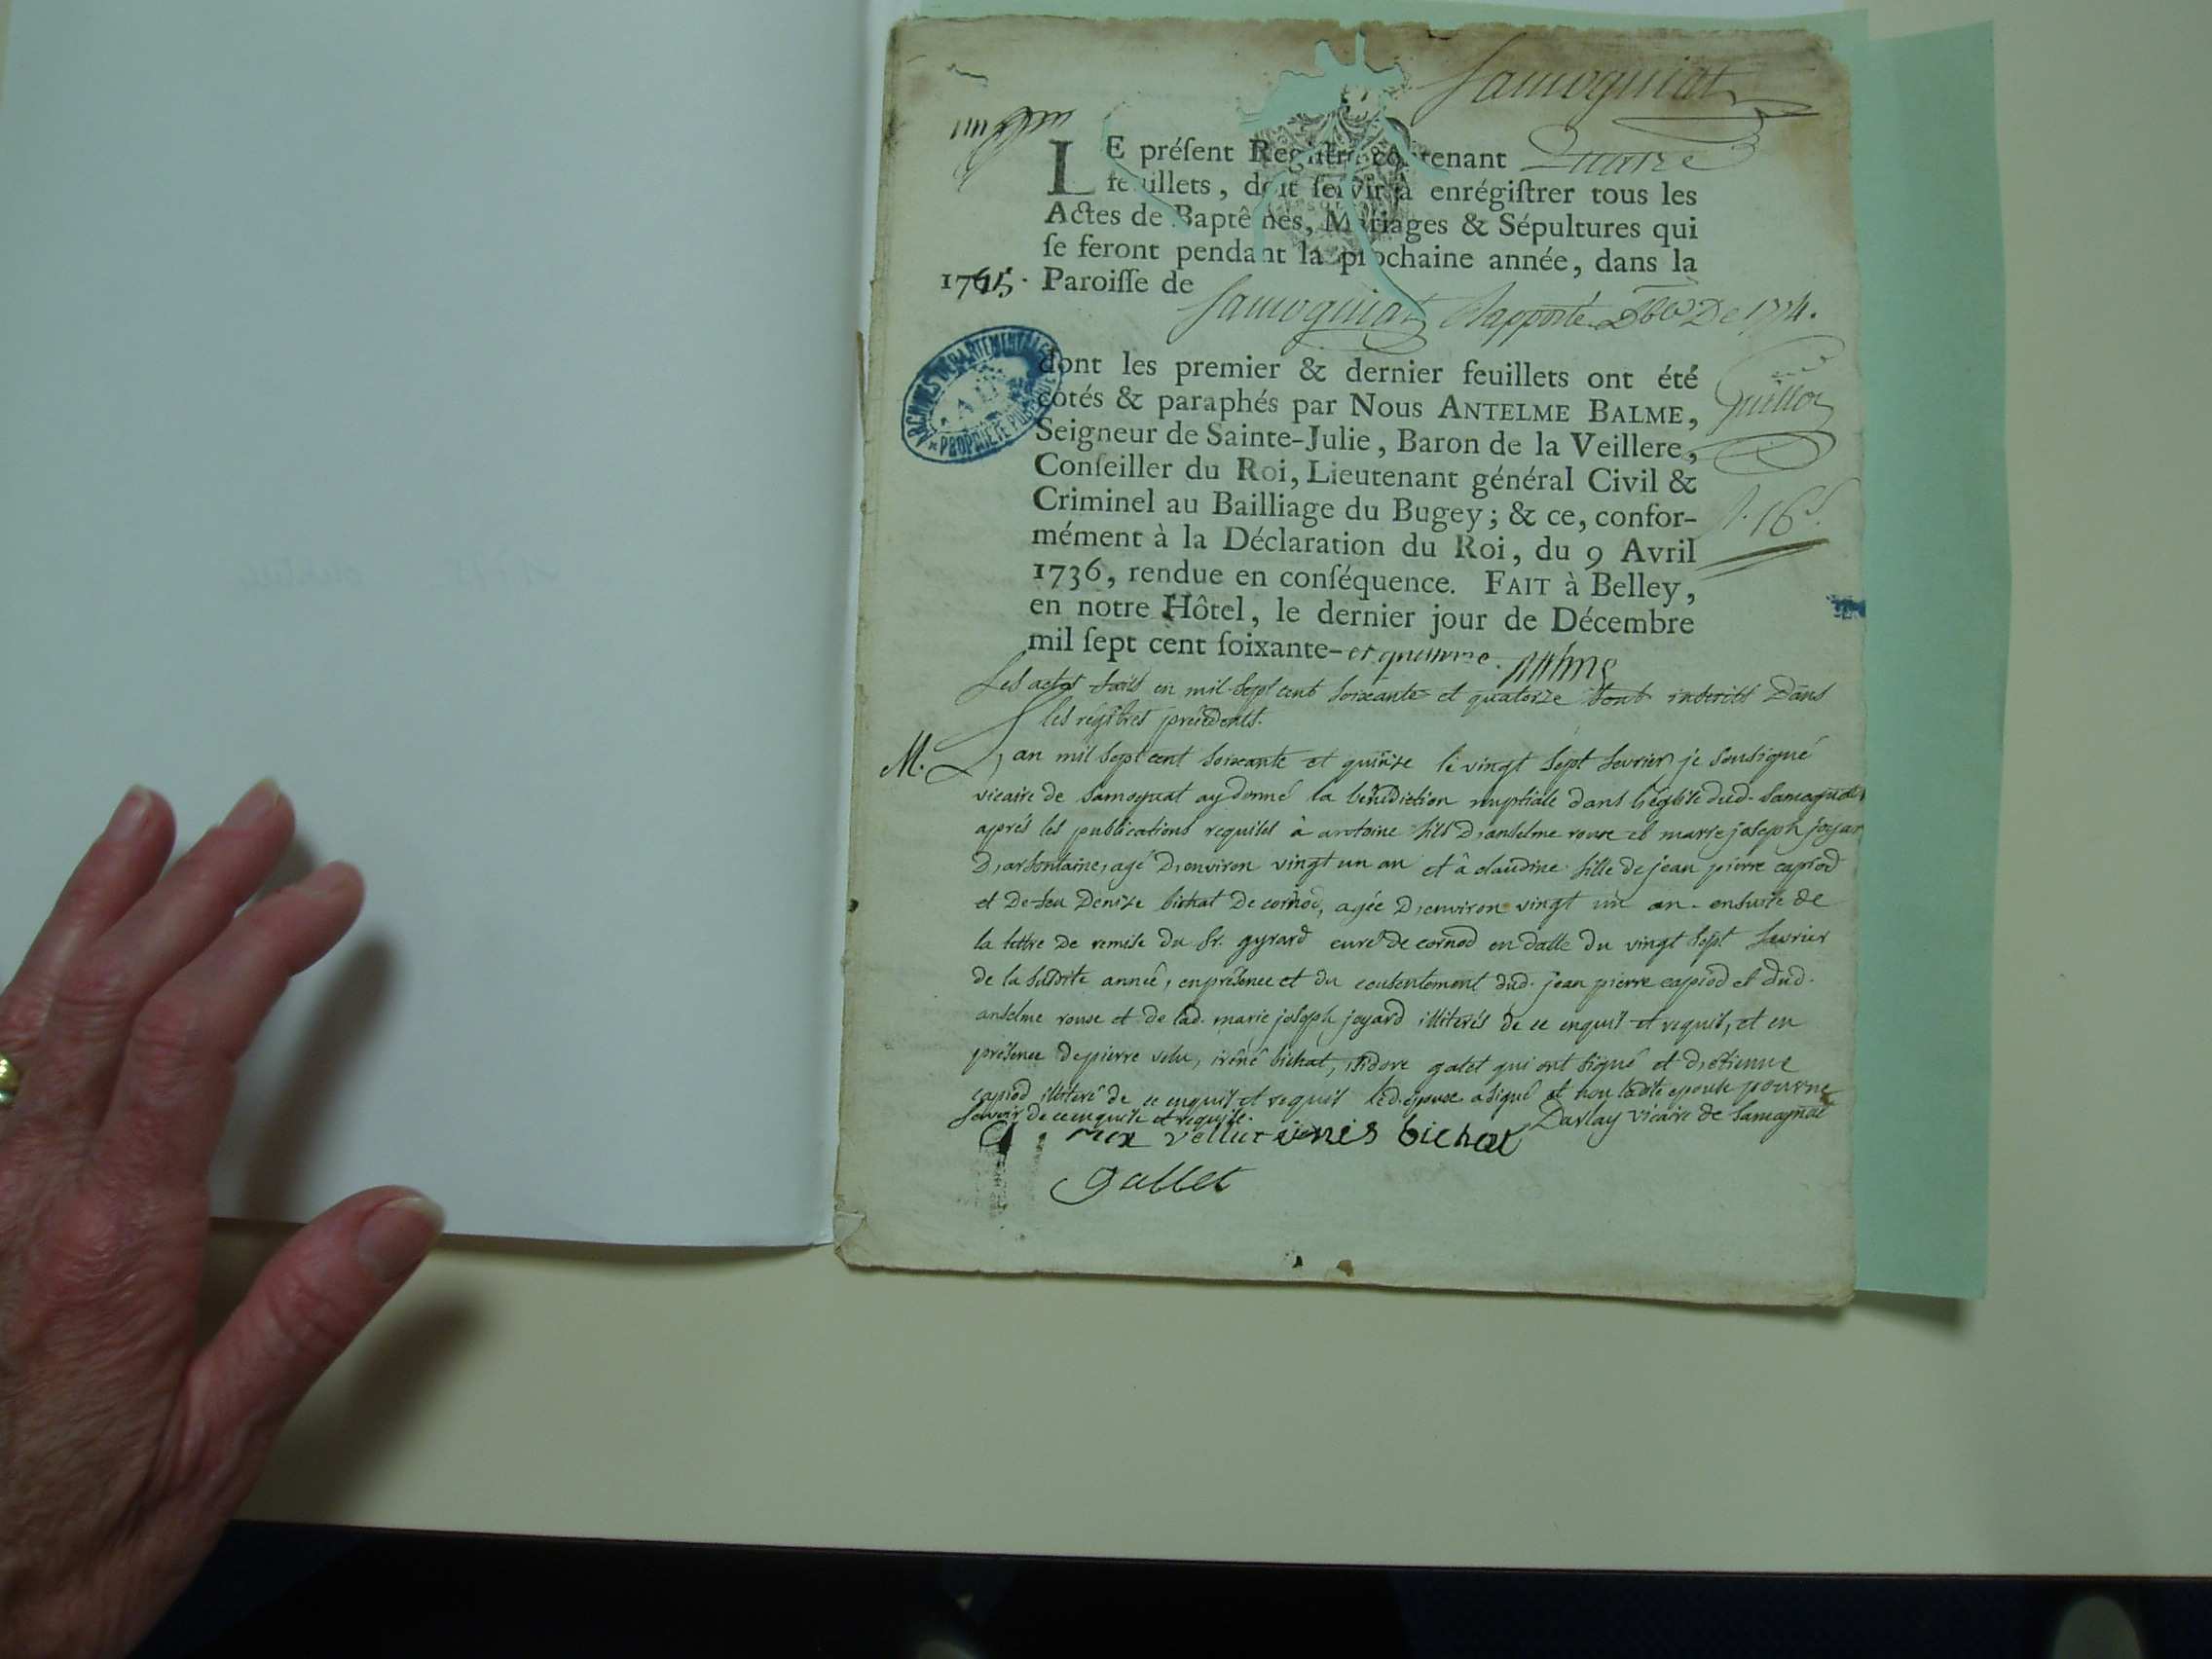 Samogniat
LE préſent Regiſtre contenant Quatre
feuillets, doit ſervir à enrégiſtrer tous les
Actes de Baptêmes, Mariages & Sépultures qui
ſe feront pendant la prochaine année, dans la
1775. Paroiſſe de
Samogniat Rapporté De 1774.
dont les premier & dernier feuillets ont été
cotés & paraphés par Nous ANTELME BALME,
Guillot
Seigneur de Sainte-Julie, Baron de la Veillere,
Conſeiller du Roi, Lieutenant général Civil &
Criminel au Bailliage du Bugey; & ce, confor-
mément à la Déclaration du Roi, du 9 Avril
1736, rendue en conſéquence. FAIT à Belley,
en notre Hôtel, le dernier jour de Décembre
mil ſept cent ſoixante-et quatorze. Balme
ARCHIVES DÉPARTEMENTALES
AIN
* PROPRIÉTÉ PUBLIQUE
Les actes faits en mil sept cent soixante et quatorze sont inscrits Dans
les régistres précédents.
M. L'an mil sept cent soixante et quinze le vingt sept fevrier je soussigné
vicaire de Samognat ay donné la bénédiction nuptiale dans l'église dud. Samognat
après les publications requises à antoine fils D'anselme rouse et marie joseph joyard
D'arfontaine, agé D'environ vingt un an et à claudine fille de jean pierre capiod
et De feu Denize bichat De cornod, agée D'environ vingt un an - ensuite de
la lettre De remise du Sr. gyrard curé de cornod en datte du vingt sept fevrier
de la susdite année, en présence et du consentement dud. jean pierre capiod et dud.
anselme rouse et de lad. marie joseph joyard illiterés de ce enquis et requis, et en
présence de pierre velu, iréné bichat, isidore galet qui ont signé et d'etienne
capiod illiteré de ce enquis et requis led. epoux a signé et non ladite epouse pour ne
savoir de ce enquise et requise. Darlay vicaire de Samognat
vellut irnes bichat
gallet